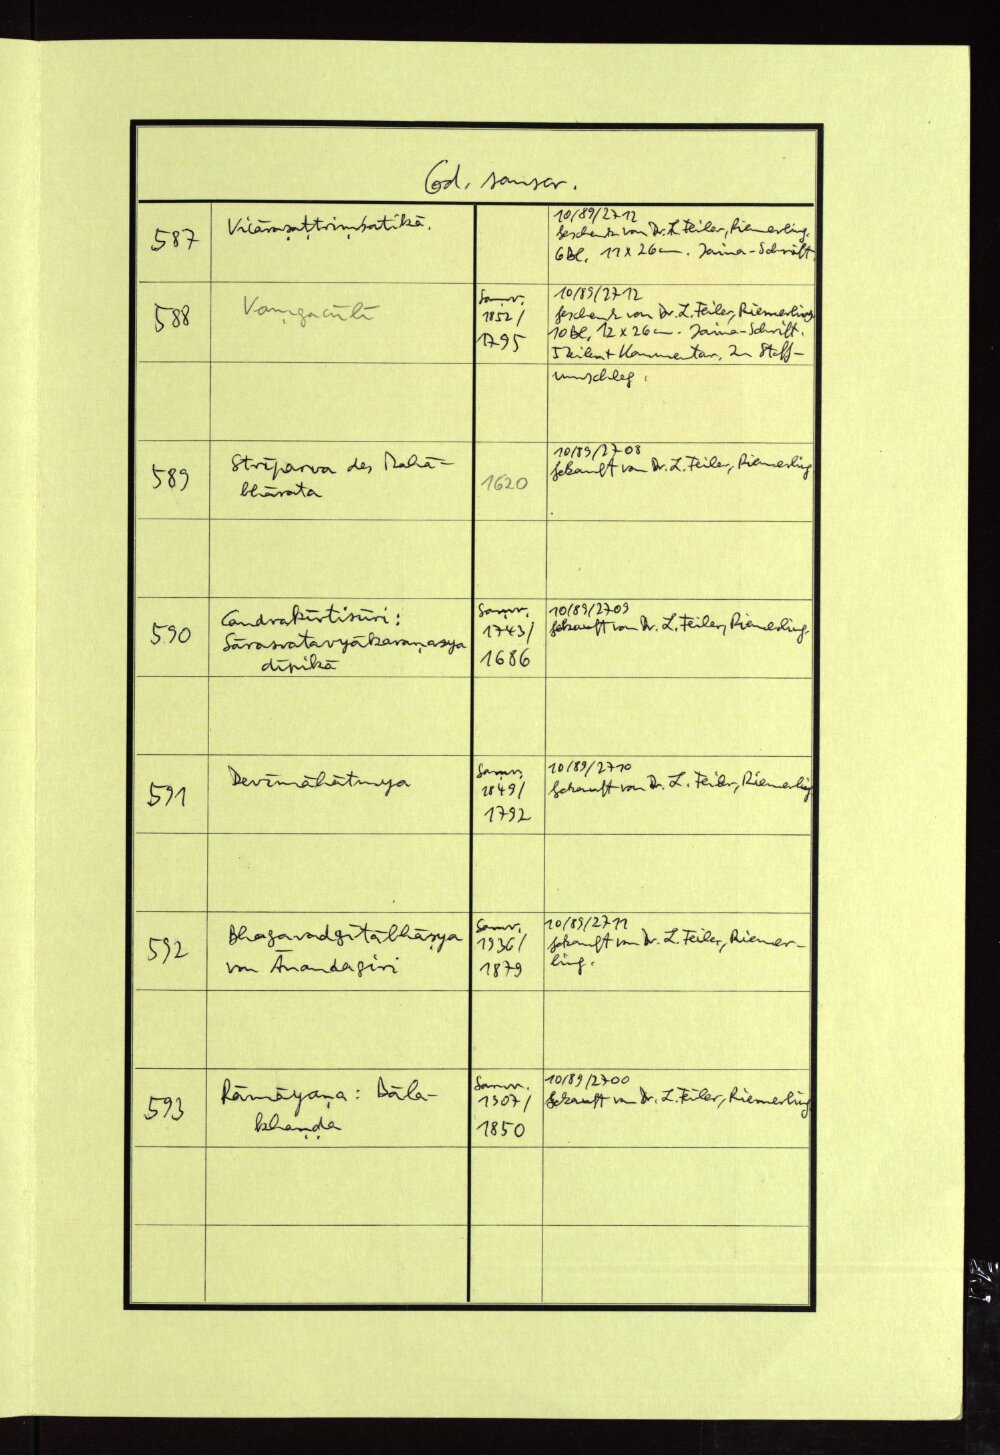 Cod. sanscr.
587
Vicāraṣaṭtriṃśatikā.
10/89/2712
Geschenk von Dr. L. Feiler, Riemerling.
6 Bl. 11 x 26 cm. Jaina-Schrift.
588
Vaṃgacūlī
Saṃv.
1852/
1795
10/89/2712
Geschenk von Dr. L. Feiler, Riemerling
10 Bl. 12 x 26 cm. Jaina-Schrift.
5 Zeilen + Kommentar. In Stoff-
umschlag.
589
Strīparva des Mahā-
bhārata
1620
10/89/2708
Gekauft von Dr. L. Feiler, Riemerling
590
Candrakīrtisūri:
Sārasvatavyākaraṇasya
dīpikā
Saṃv.
1743/
1686
10/89/2709
Gekauft von Dr. L. Feiler, Riemerling.
591
Devīmāhātmya
Saṃv.
1849/
1792
10/89/2710
Gekauft von Dr. L. Feiler, Riemerling
592
Bhagavadgītābhāṣya
von Ānandagiri
Saṃv.
1936/
1879
10/89/2711
Gekauft von Dr. L. Feiler, Riemer-
ling.
593
Rāmāyaṇa: Bāla-
khaṇḍa
Saṃv.
1907/
1850
10/89/2700
Gekauft von Dr. L. Feiler, Riemerling